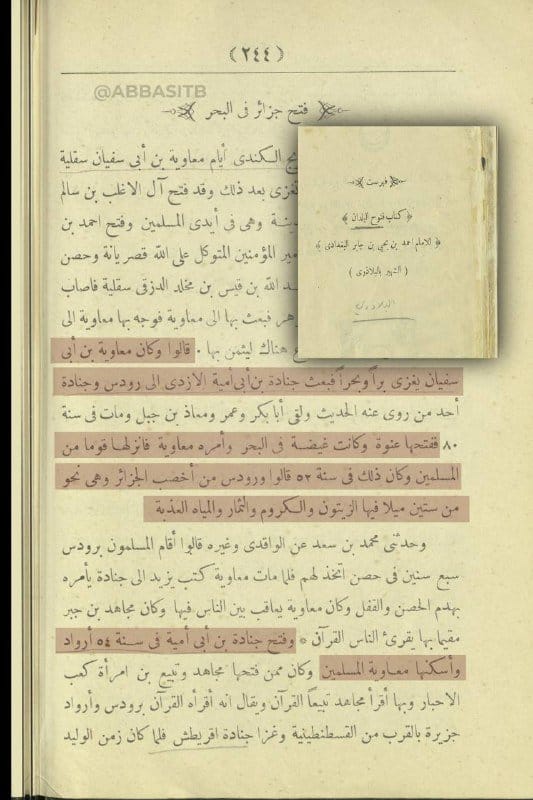 (٢٤٤)
@ABBASITB
فتح جزائر فى البحر
ج الكندى أيام معاوية بن أبى سفيان سقلية
تغزى بعد ذلك وقد فتح آل الاغلب بن سالم
ينة وهى فى أيدى المسلمين وفتح احمد بن
ير المؤمنين المتوكل على الله قصريانة وحصن
د الله بن قيس بن مخلد الدزقى سقلية فاصاب
هر فبعث بها الى معاوية فوجه بها معاوية الى
ع هناك ليثمن بها ٠ قالوا وكان معاوية بن أبى
سفيان يغزى براً وبحراً فبعث جنادة بن أبى أمية الازدى الى رودس وجنادة
أحد من روى عنه الحديث ولقى أبا بكر وعمر ومعاذ بن جبل ومات فى سنة
٨٠ ففتحها عنوة وكانت غيضة فى البحر وأمره معاوية فانزلها قوما من
المسلمين وكان ذلك فى سنة ٥٢ قالوا ورودس من أخصب الجزائر وهى نحو
من ستين ميلا فيها الزيتون والكروم والثمار والمياه العذبة
وحدثنى محمد بن سعد عن الواقدى وغيره قالوا أقام المسلمون برودس
سبع سنين فى حصن اتخذ لهم فلما مات معاوية كتب يزيد الى جنادة يأمره
بهدم الحصن والقفل وكان معاوية يعاقب بين الناس فيها وكان مجاهد بن جبر
مقيما بها يقرئ الناس القرآن * وفتح جنادة بن أبى أمية فى سنة ٥٤ أرواد
وأسكنها معاوية المسلمين وكان ممن فتحها مجاهد وتبيع بن امرأة كعب
الاحبار وبها أقرأ مجاهد تبيعاً القرآن ويقال انه أقرأه القرآن برودس وأرواد
جزيرة بالقرب من القسطنطينية وغزا جنادة اقريطش فلما كان زمن الوليد
فهرست
﴿ كتاب فتوح البلدان ﴾
﴿ للامام احمد بن يحيى بن جابر البغدادى ﴾
( الشهير بالبلاذرى )
البلاذرى